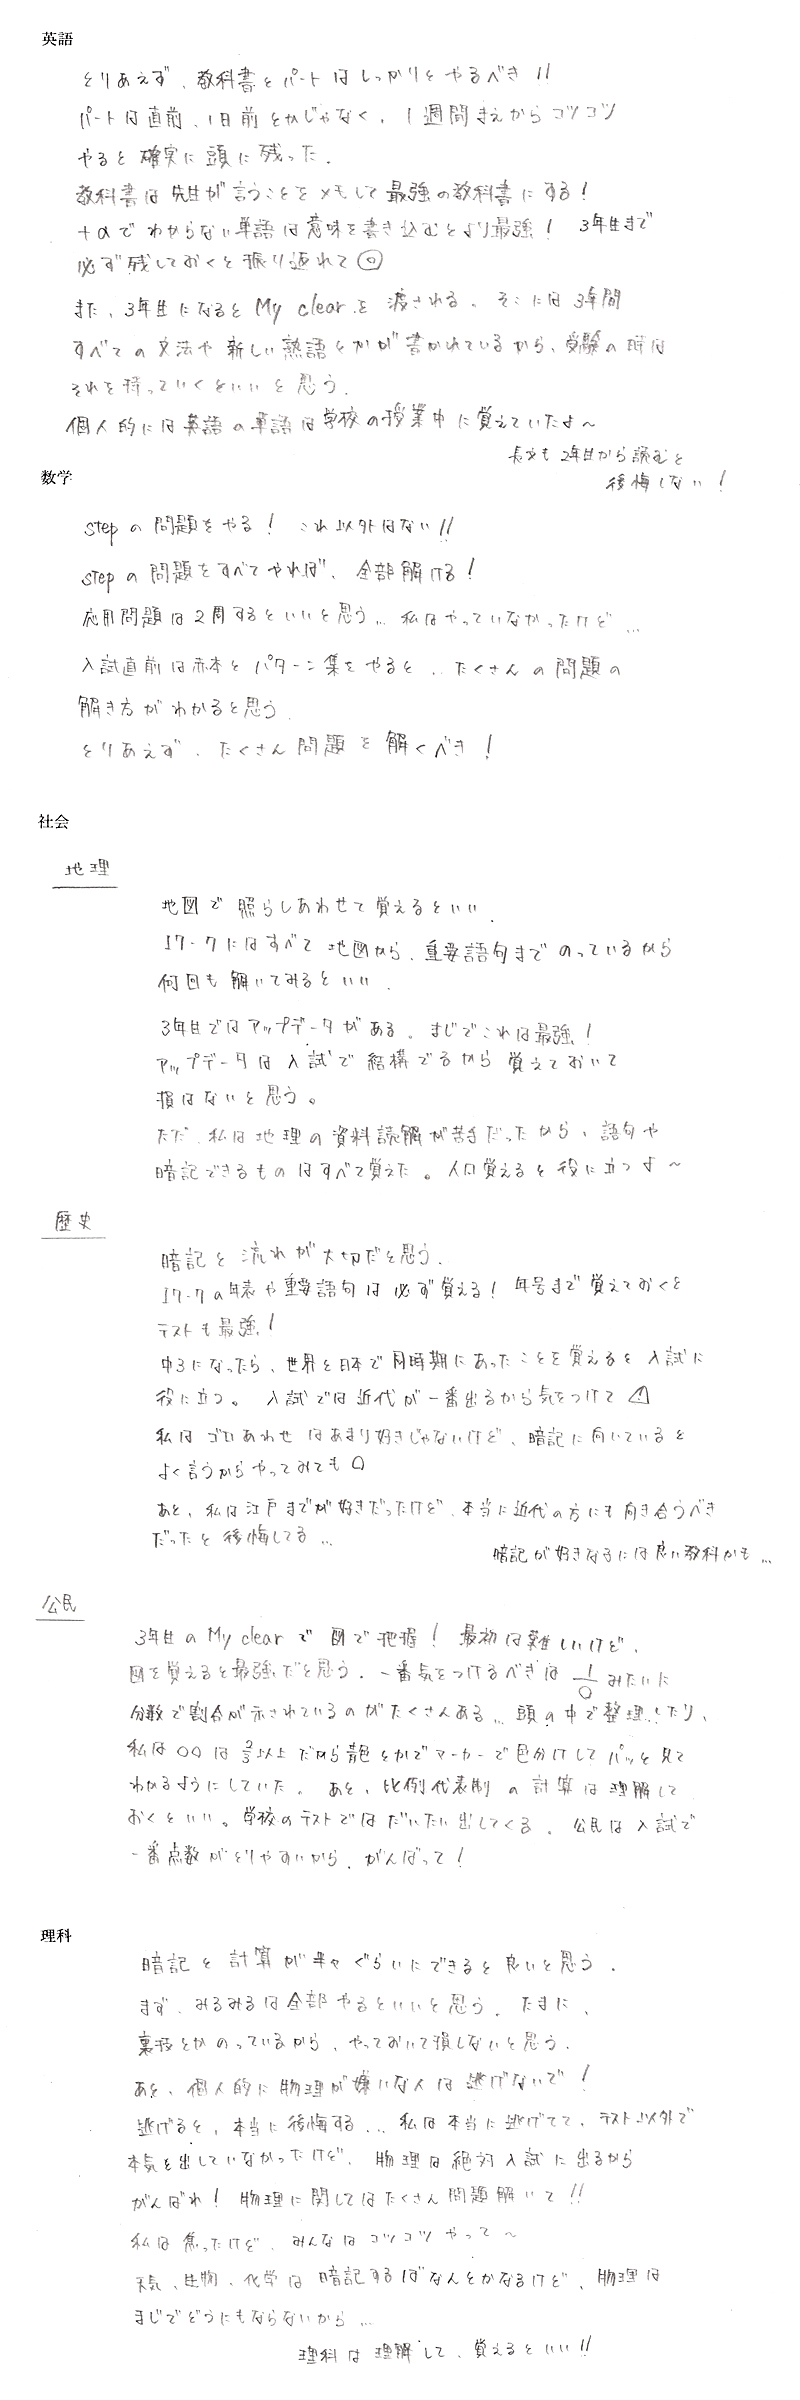 英語
とりあえず、教科書とパートはしっかりとやるべき!!
パートは直前、1日前とかじゃなく、1週間まえからコツコツ
やると確実に頭に残った.
教科書は先生が言うことをメモして最強の教科書にする!
+αでわからない単語は意味を書き込むとより最強! 3年生まで
必ず残しておくと振り返れて◎
また、3年生になると My clear を渡される。そこには3年間
すべての文法や新しい熟語とかが書かれているから、受験の時は
それを持っていくといいと思う.
個人的には英語の単語は学校の授業中に覚えていたよ~
長文も2年目から読むと
後悔しない!
数学
stepの問題をやる! これ以外はない!!
stepの問題をすべてやれば、全部解ける!
応用問題は2周するといいと思う… 私はやっていなかったけど…
入試直前は赤本とパターン集をやると、たくさんの問題の
解き方がわかると思う.
とりあえず、たくさん問題を解くべき!
社会
地理
地図で照らしあわせて覚えるといい.
ワークにはすべて地図から、重要語句までのっているから
何回も解いてみるといい.
3年目ではアップデータがある。まじでこれは最強!
アップデータは入試で結構でるから覚えておいて
損はないと思う。
ただ、私は地理の資料読解が苦手だったから、語句や
暗記できるものはすべて覚えた。人口覚えると役に立つよ~
歴史
暗記と流れが大切だと思う.
ワークの年表や重要語句は必ず覚える! 年号まで覚えておくと
テストも最強!
中3になったら、世界と日本で同時期にあったことを覚えると入試に
役に立つ。 入試では近代が一番出るから気をつけて⚠
私はゴロあわせはあまり好きじゃないけど、暗記に向いていると
よく言うからやってみても○
あと、私は江戸までが好きだったけど、本当に近代の方にも向き合うべき
だったと後悔してる…
暗記が好きな子には良い教科かも…
公民
3年目の My clear で図で把握! 最初は難しいけど、
図を覚えると最強だと思う. 一番気をつけるべきは 1/○ みたいに
分数で割合が示されているのがたくさんある… 頭の中で整理したり、
私は○○は2/3以上だから青色とかでマーカーで色分けしてパッと見て
わかるようにしていた。 あと、比例代表制の計算は理解して
おくといい。学校のテストではだいたい出してくる。 公民は入試で
一番点数がとりやすいから、がんばって!
理科
暗記と計算が半々ぐらいにできると良いと思う.
まず、みるみるは全部やるといいと思う. たまに、
裏技とかのっているから、やっておいて損しないと思う.
あと、個人的に物理が嫌いな人は逃げないで!
逃げると、本当に後悔する… 私は本当に逃げてて、テスト以外で
本気を出していなかったけど、物理は絶対入試に出るから
がんばれ! 物理に関してはたくさん問題解いて!!
私は焦ったけど、みんなはコツコツやって~
天気、生物、化学は暗記すればなんとかなるけど、物理は
まじでどうにもならないから…
理科は理解して、覚えるといい!!